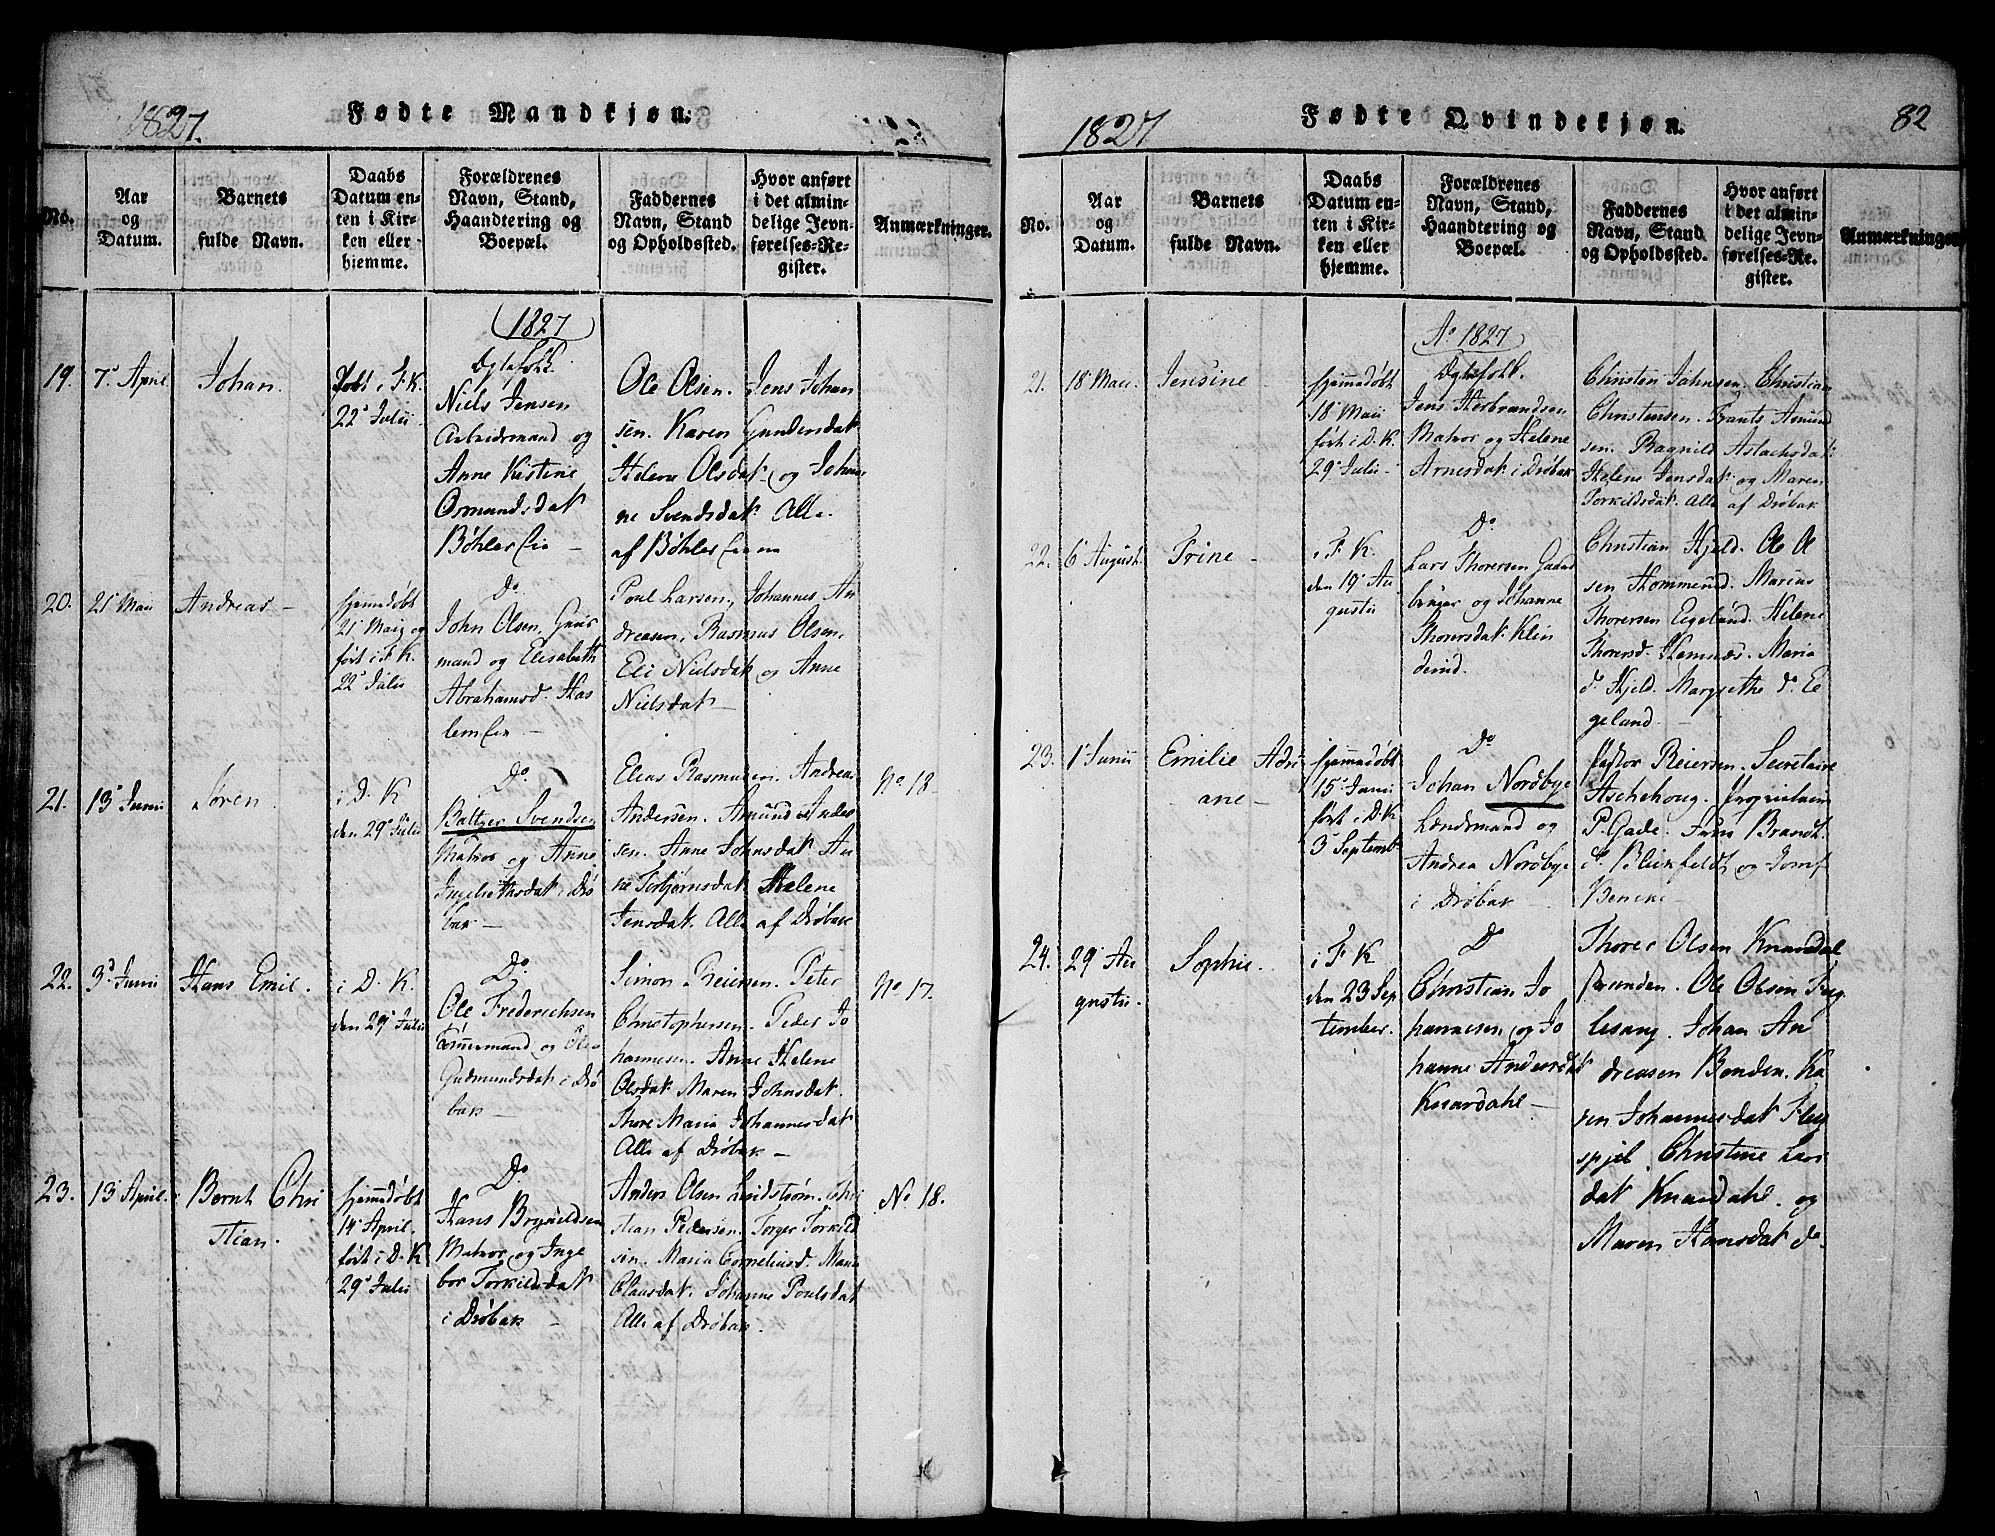 1827.
Fødte Mandkjøn.
No.
Aar
og
Datum.
Barnets
fulde Navn.
Daabs
Datum en-
ten i Kir-
ken eller
hjemme.
Forældrenes
Navn, Stand,
Haandtering og
Boepæl.
Faddernes
Navn, Stand
og Opholdssted.
Hvor anført
i det almin-
delige Jevn-
førelses-Re-
gister.
Anmærkninger.
1827
19.
7d April
Johan.
Døbt i F. K.
22d Julii
Ægtefolk
Niels Jensen
Arbeidsmand og
Anne Kistine
Osmundsdat
Bøhler
Ole Olsen. Jens Johan
sen. Karen Gundersdat
Helene Olsdat og Johan
ne Svendsdat. Alle
af Bøhler
20.
21 Maii
Andreas
hjemmedøbt
21 Maii og
ført i F. K.
22d Julii
Do
John Olsen,
mand og Elisabeth
Abrahamsd. Has
lem
Poul Larsen, Johannes An
dreasen, Rasmus Olsen,
Eli Nielsdat og Anne
Nielsdat
21.
13d Junii
Søren
i D. K
den 29d Julii
Do
Baltzer Svendsen
Matros og Anne
i Drø
bak
Elias Rasmussen. Andreas
Andersen. Amund Anders
sen. Anne Johnsdat An
ne Torbjørnsdat. Helene
Jensdat. Alle af Drøbak
No 18
22.
3d Junii
Hans Emil.
i D. K.
den 29d Julii
Do
Ole Frederichsen
Tømmermand og
Gudmundsdat i Drø
bak
Simon Reiersen. Peter
Christophersen. Peder Jo
hannesen. Anne Helene
Olsdat. Maren Johnsdat.
Thore Maria Johannesdat
Alle af Drøbak
No 17.
23.
13d April.
Bernt Chri
stian.
hjemmedøbt
14d April.
ført i D. K
29d Julii
Do
Hans Brynildsen
Matros og Inge
bor Torkildsdat
i Drøbak
Anders Olsen Lindstrøm. Chri
stian Pedersen. Torger Torkild
sen. Maria Corneliusd.
Clausdat. Johanne Poulsdat
Alle af Drøbak.
No 18.
1827
Fødte Qvindekjøn.
82
No.
Aar
og
Datum.
Barnets
fulde Navn.
Daabs
Datum en-
ten i Kir-
ken eller
hjemme.
Forældrenes
Navn, Stand,
Haandtering og
Boepæl.
Faddernes
Navn, Stand
og Opholdssted.
Hvor anført
i det almin-
delige Jevn-
førelses-Re-
gister.
Anmærkninger
Ao 1827
21.
18d Maii
Jensine
hjemmedøbt
18d Maii
ført i D. K.
29d Julii
Ægtefolk.
Jens Herbrandsen
Matros og Helene
Arnesdat i Drøbak
Christen Johnsen. Christian
Christensen. Frants Amund
sen. Ragnild Aslachsdat
Helene Jensdat og Maren
Torkildsdat. Alle af Drøbak
22.
6d August
Trine
i F. K.
den 19d Au
gusti
Do
Lars Thorersen Gaard
bruger og Johanne
Thorersdat Klin
derud.
Christian Kjeld. Ole Ol
sen Hommerud. Marius
Thorersen Egeland. Helene
Thorersd. Hemnæs. Maria
do Kjeld. Margrethe do E
geland
23.
1d Junii
Emilie Adri
ane
hjemmedøbt
15d Junii
ført i D. K
3 Septemb
Do
Johan Nordbye
Lændsmand og
Andrea Nordbye
i Drøbak
Pastor Reiersen. Secretaire
Aschehoug. Proprietair
P. Gade. Brandt.
do Blixfeldt og Jomf
Bencke
24.
29d Au
gusti.
Sophie.
i F. K
den 23 Sep
tember.
Do
Christian Jo
hannesen og Jo
hanne Andersdat
Knardahl
Thorer Olsen Knardal
Ole Olsen Fug
lesang. Johan An
dreasen Bonden. Ka
ren Johannesdat
Christine Lars
dat Knardahl. og
Maren Hansdat do